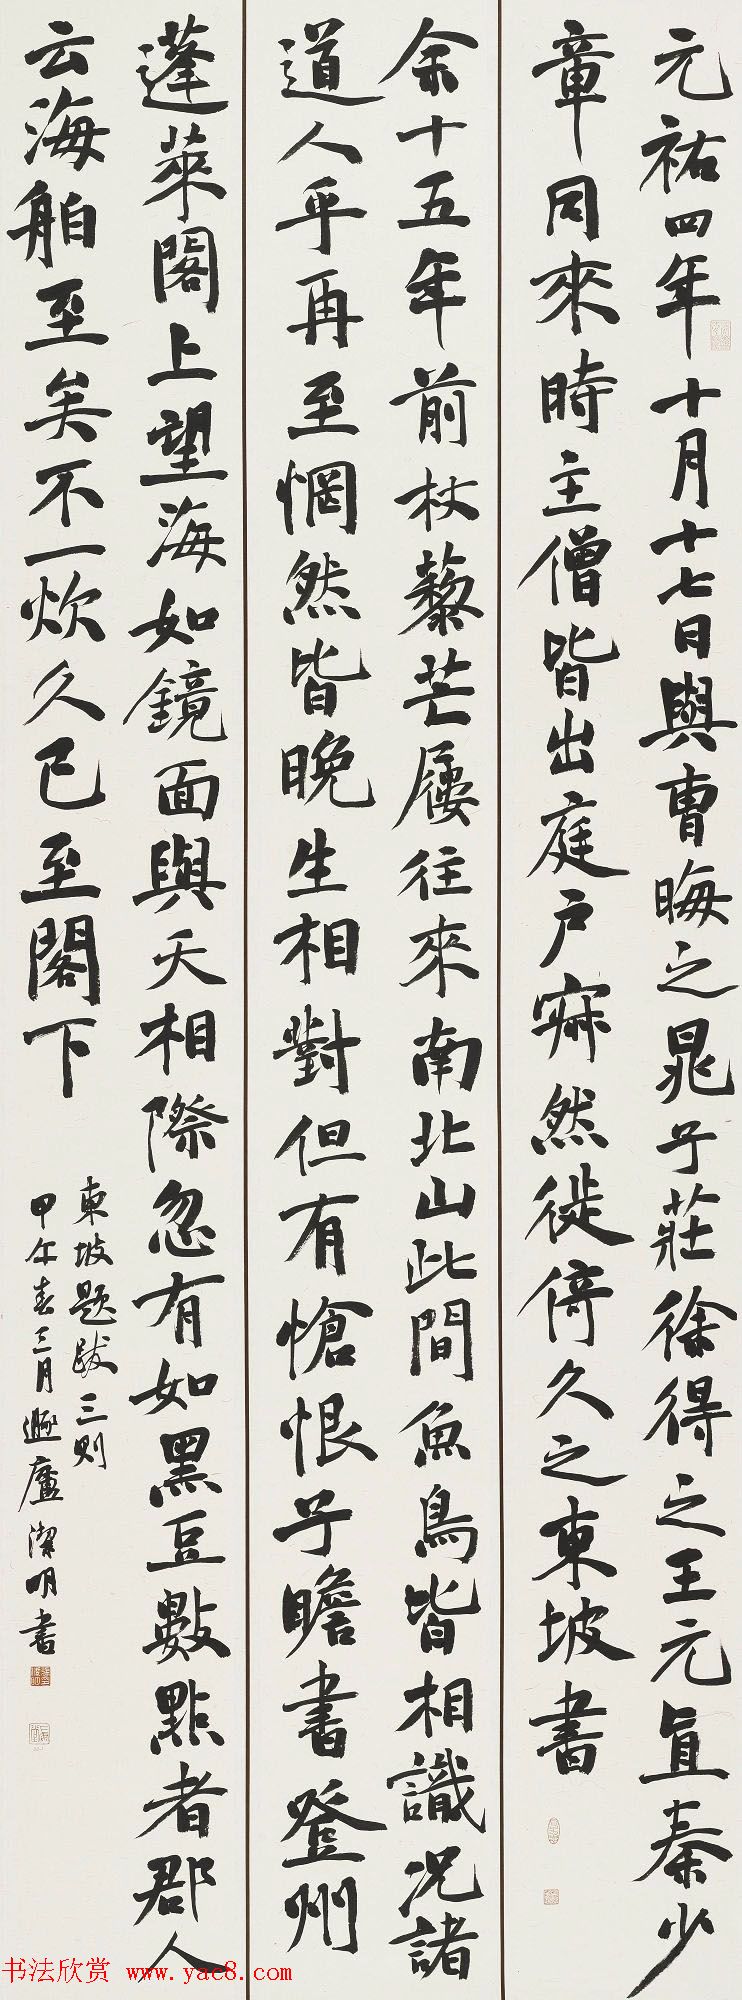 元祐四年十月十七日與曹晦之晁子莊徐得之王元直秦少
章同來時主僧皆出庭戶寂然徙倚久之東坡書
余十五年前杖藜芒屨往來南北山此間魚鳥皆相識況諸
道人乎再至惘然皆晚生相對但有愴恨子瞻書登州
蓬萊閣上望海如鏡面與天相際忽有如黑豆數點者郡人
云海舶至矣不一炊久已至閣下
東坡题跋三则
甲午春三月遯廬潔明書
书法欣赏 www.yac8.com